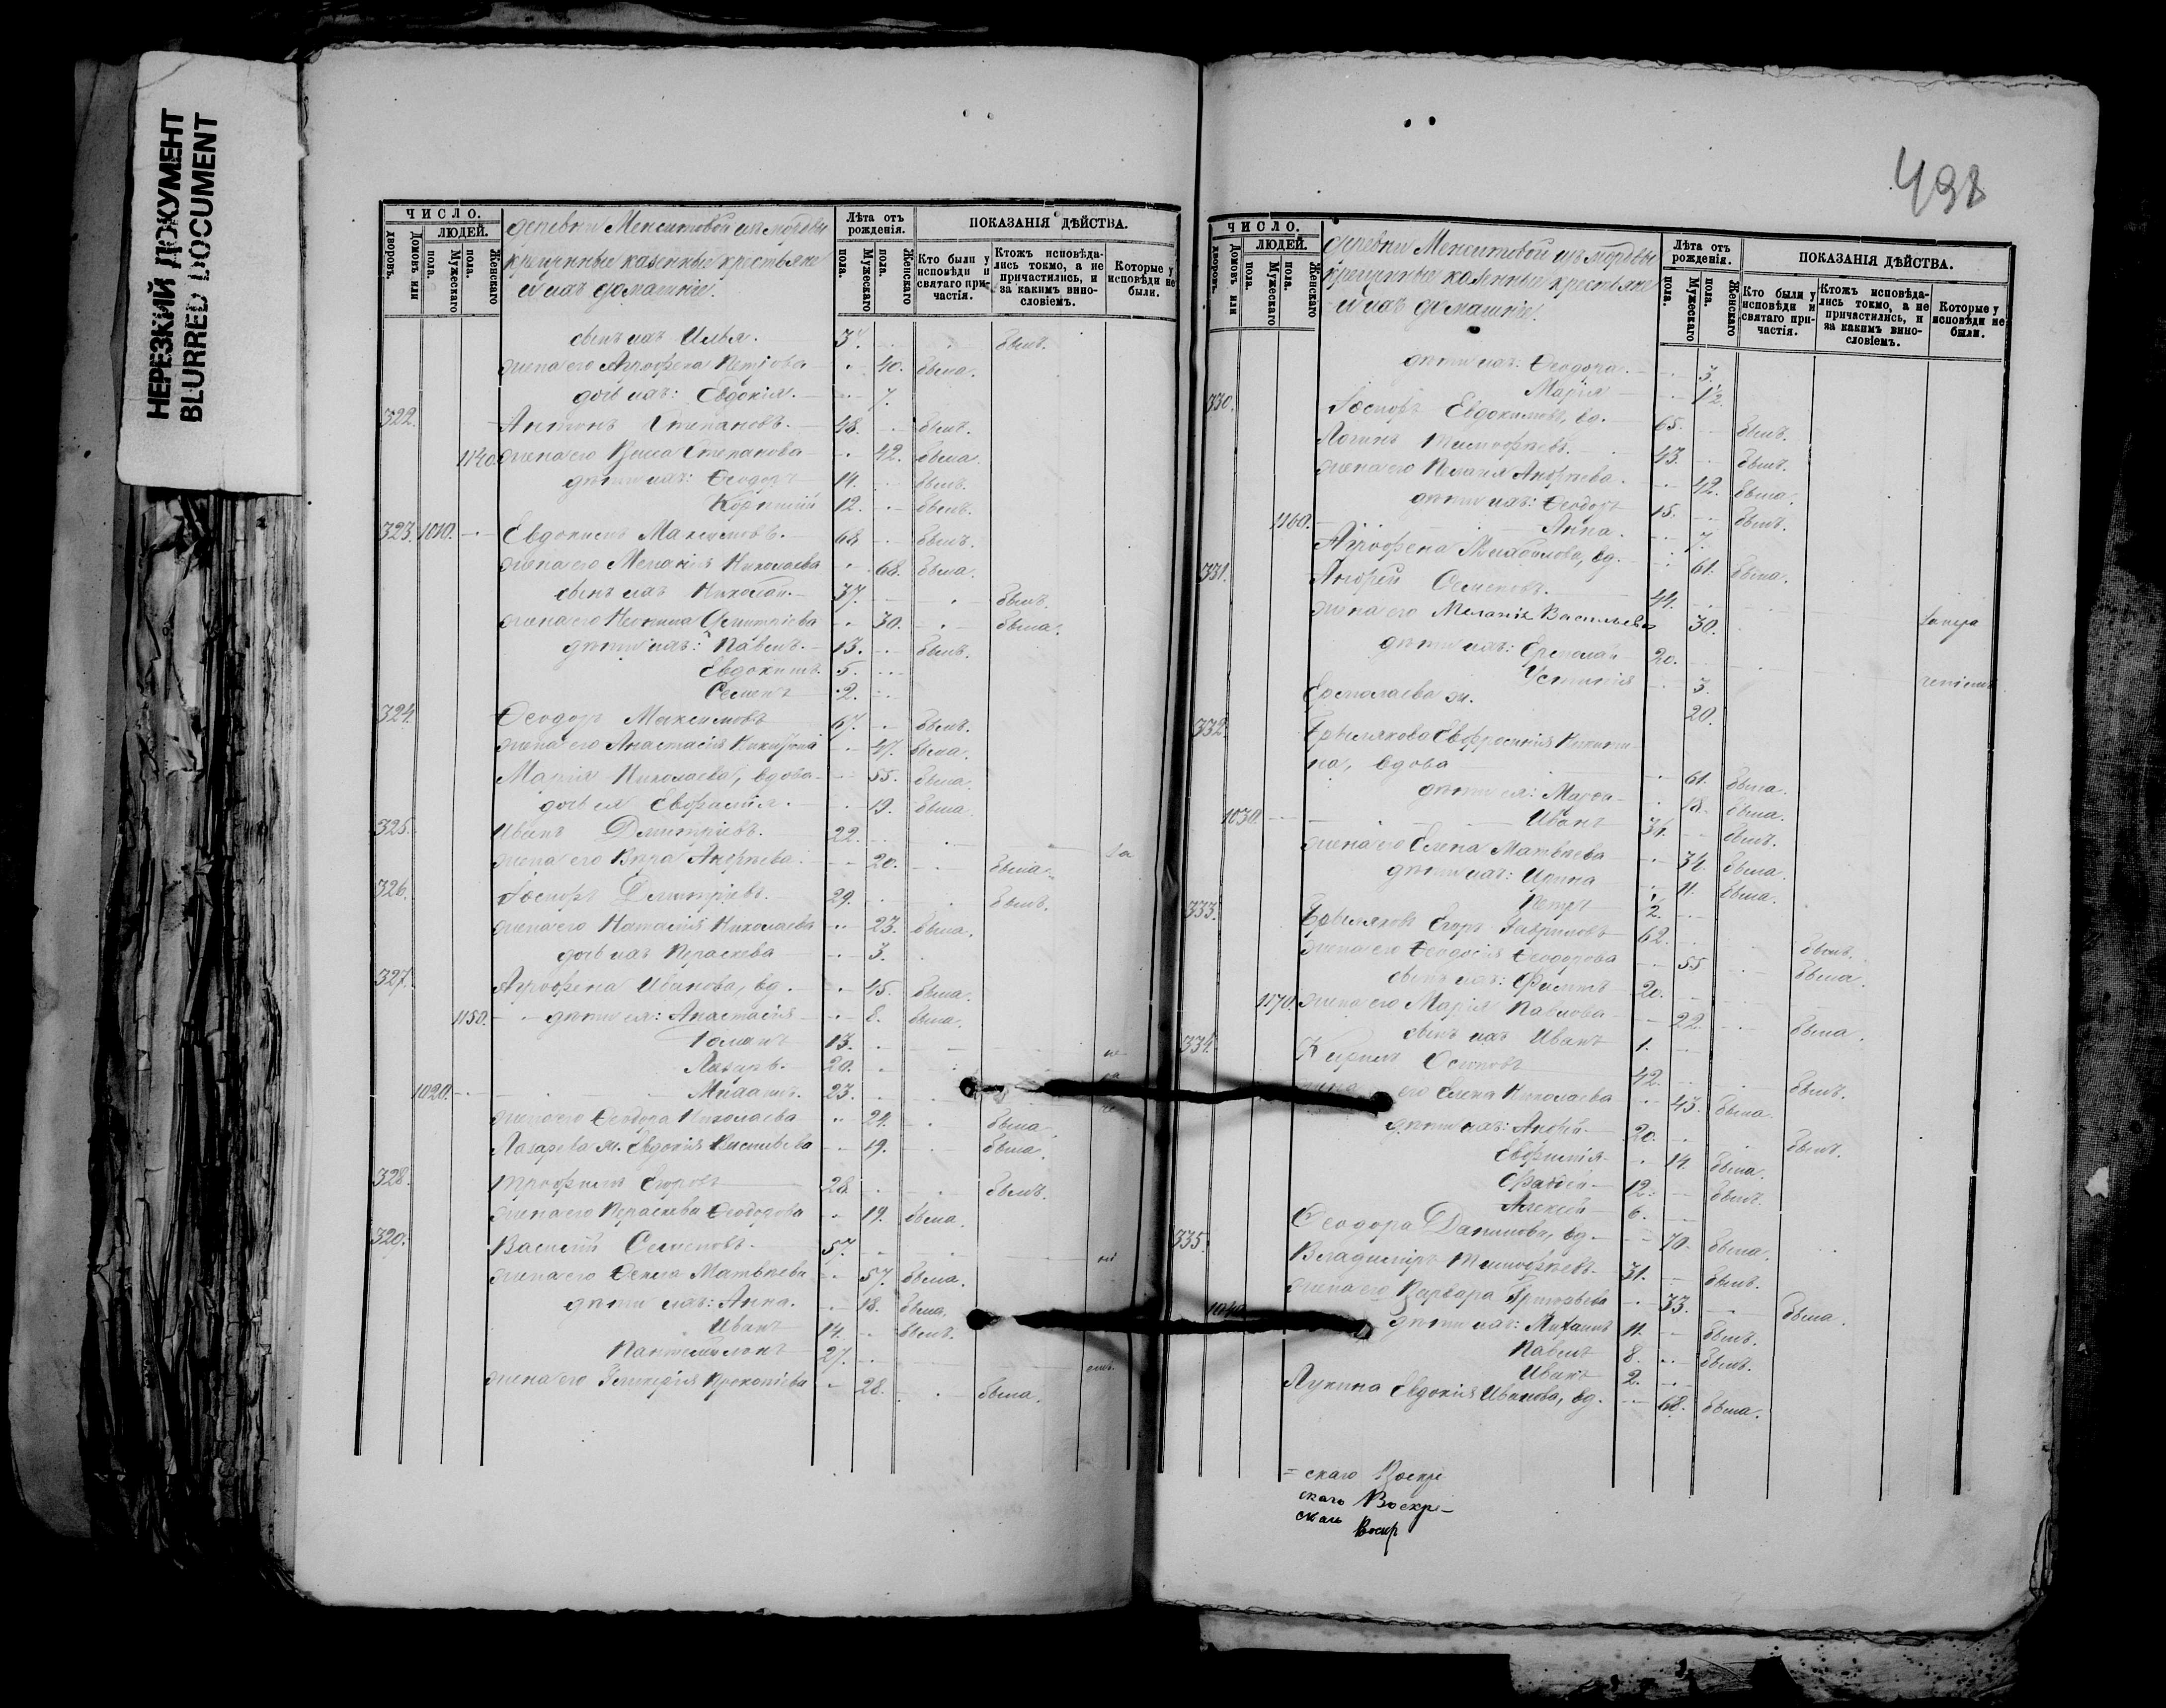 НЕРЕЗКИЙ ДОКУМЕНТ
BLURRED DOCUMENT
ЧИСЛО.
ЛЮДЕЙ.
Домовъ или дворовъ.
Мужескаго пола.
Женскаго пола.
крещенные казенные крестьяне
и ихъ домашніе.
Лѣта отъ рожденія.
Мужескаго пола.
Женскаго пола.
ПОКАЗАНІЯ ДѢЙСТВА.
Кто были у исповѣди и святаго причастія.
Ктожъ исповѣдались токмо, а не причастились, и за какимъ винословіемъ.
Которые у исповѣди не были.
сынъ ихъ Илья. былъ.
жена его Агрофена Петрова 40. была.
дочь ихъ: Евдокія. 7.
322. Антонъ Степановъ. 48. былъ.
1140. жена его Васса Степанова 42. была.
дѣти ихъ: Ѳеодоръ 14. былъ.
12. былъ.
323. 1010. Евдокимъ Максимовъ. 68 былъ.
жена его Меланія Николаева 68. была.
сынъ ихъ Николай. 37. былъ.
жена его Неонила Димитріева 30. была.
дѣти ихъ: Павелъ. 13. былъ.
Евдокимъ. 5.
Семенъ 2.
324. Ѳеодоръ Максимовъ 67. былъ.
жена его Анастасія 47. была.
Марія Николаева, вдова 55. была.
дочь ея Евфимія. 19. была
325. Иванъ Димитріевъ. 22.
жена его Вѣра Андреева. 20. была.
326. Іосифъ Димитріевъ. 29. былъ.
жена его Наталія Николаева 23. была.
дочь ихъ Параскева 3.
327. Агрофена Иванова, вд. 45. была.
1150. дѣти ея: Анастасія 8. была.
Романъ 13.
Лазарь. 20.
1020. Михаилъ. 23.
жена его Ѳеодора Николаева 24. была.
Лазарева ж. Евдокія Васильева 19. была.
328. Трофимъ Егоровъ 28. былъ.
жена его Параскева Ѳеодорова 19. была.
329. Василій Семеновъ. 57.
жена его Ѳекла Матвѣева 57. была.
дѣти ихъ: Анна. 18. была.
Иванъ 14. былъ.
Пантелеимонъ 27.
жена его Гликерія Прокопіева 28. была.
498
ЧИСЛО.
ЛЮДЕЙ.
Домовъ или дворовъ.
Мужескаго пола.
Женскаго пола.
крещенные казенные крестьяне
и ихъ домашніе.
Лѣта отъ рожденія.
Мужескаго пола.
Женскаго пола.
ПОКАЗАНІЯ ДѢЙСТВА.
Кто были у исповѣди и святаго причастія.
Ктожъ исповѣдались токмо, а не причастились, и за какимъ винословіемъ.
Которые у исповѣди не были.
дѣти ихъ: Ѳеодора. 3.
Марія 1/2.
330. Іосифъ Евдокимовъ, вд. 65. былъ.
Логинъ Тимофѣевъ. 43. былъ.
жена его Пелагія Андреева. 42. была.
дѣти ихъ: Ѳеодоръ 15. былъ.
1160. Анна. 7.
Агрофена Михайлова, вд. 61. была.
331. Андрей Семеновъ. 44.
жена его Меланія Васильева 30.
дѣти ихъ: Ермолай 20.
Устинія 3.
Ермолаева ж. 20.
332. Евфросинія Никити-
на, вдова 61. была.
дѣти ея: Марѳа 18. была.
1030. Иванъ 34. былъ.
жена его Елена Матвѣева 34. была.
дѣти ихъ: Ирина 11. была.
Петръ 2.
333. Егоръ Гавриловъ 62. былъ.
жена его Ѳеодосія Ѳеодорова 55 была.
сынъ ихъ: Филиппъ 20.
1170. жена его Марія Павлова 22. была.
сынъ ихъ Иванъ 1.
334. Кирилъ Осиповъ 42. былъ.
жена его Елена Николаева 43. была.
дѣти ихъ: Андрей 20. былъ.
Евфимія 14. была.
Фаддей 12. былъ.
Алексѣй 6.
Ѳеодора Данилова, вд. 70. была.
335. Владиміръ Тимофѣевъ. 31. былъ.
1040. жена его Варвара Григорьева 33. была.
дѣти ихъ: Михаилъ 11. былъ.
Павелъ 8. былъ.
Иванъ 2.
Лукина Евдокія Иванова, вд. 68. была.
скаго Воскре
скаго Воскре-
скаго Воскр